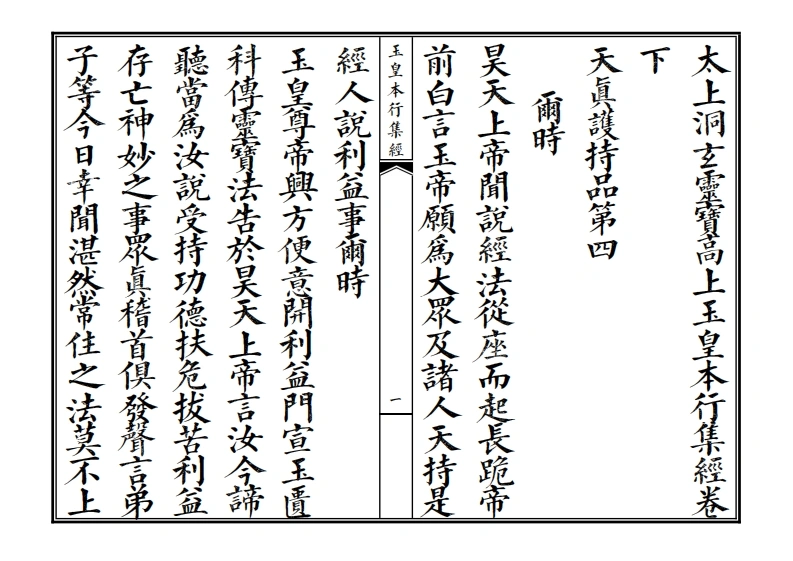 太上洞玄靈寶高上玉皇本行集經卷
下
天眞護持品第四
爾時
昊天上帝聞說經法從座而起長跪帝
前白言玉帝願爲大眾及諸人天持是
玉皇本行集經
一
經人說利益事爾時
玉皇尊帝興方便意開利益門宣玉匱
科傳靈寶法告於昊天上帝言汝今諦
聽當爲汝說受持功德扶危拔苦利益
存亡神妙之事眾眞稽首俱發聲言弟
子等今日幸聞湛然常住之法莫不上